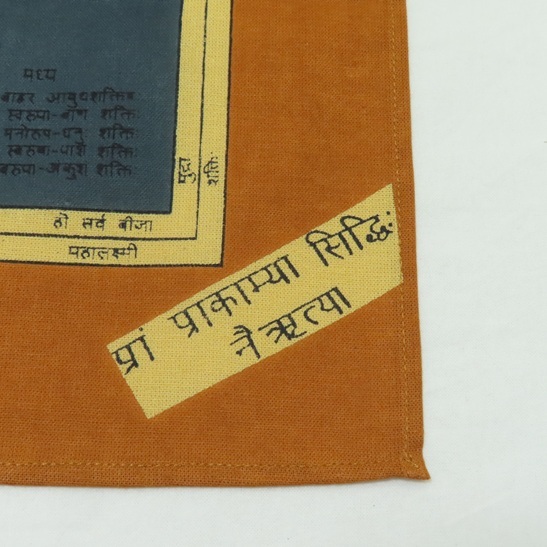 मध्य
बाहर आयुधशक्तिः
स्वरुपा-बाण शक्तिः
मनोरुप-धनुः शक्तिः
स्वरुपा-पाश शक्तिः
स्वरुपा-अंकुश शक्तिः
मुद्रा
शक्तिः
ह्रीं सर्व बीजा
महालक्ष्मी
प्रां प्राकाम्या सिद्धिः
नैऋत्या